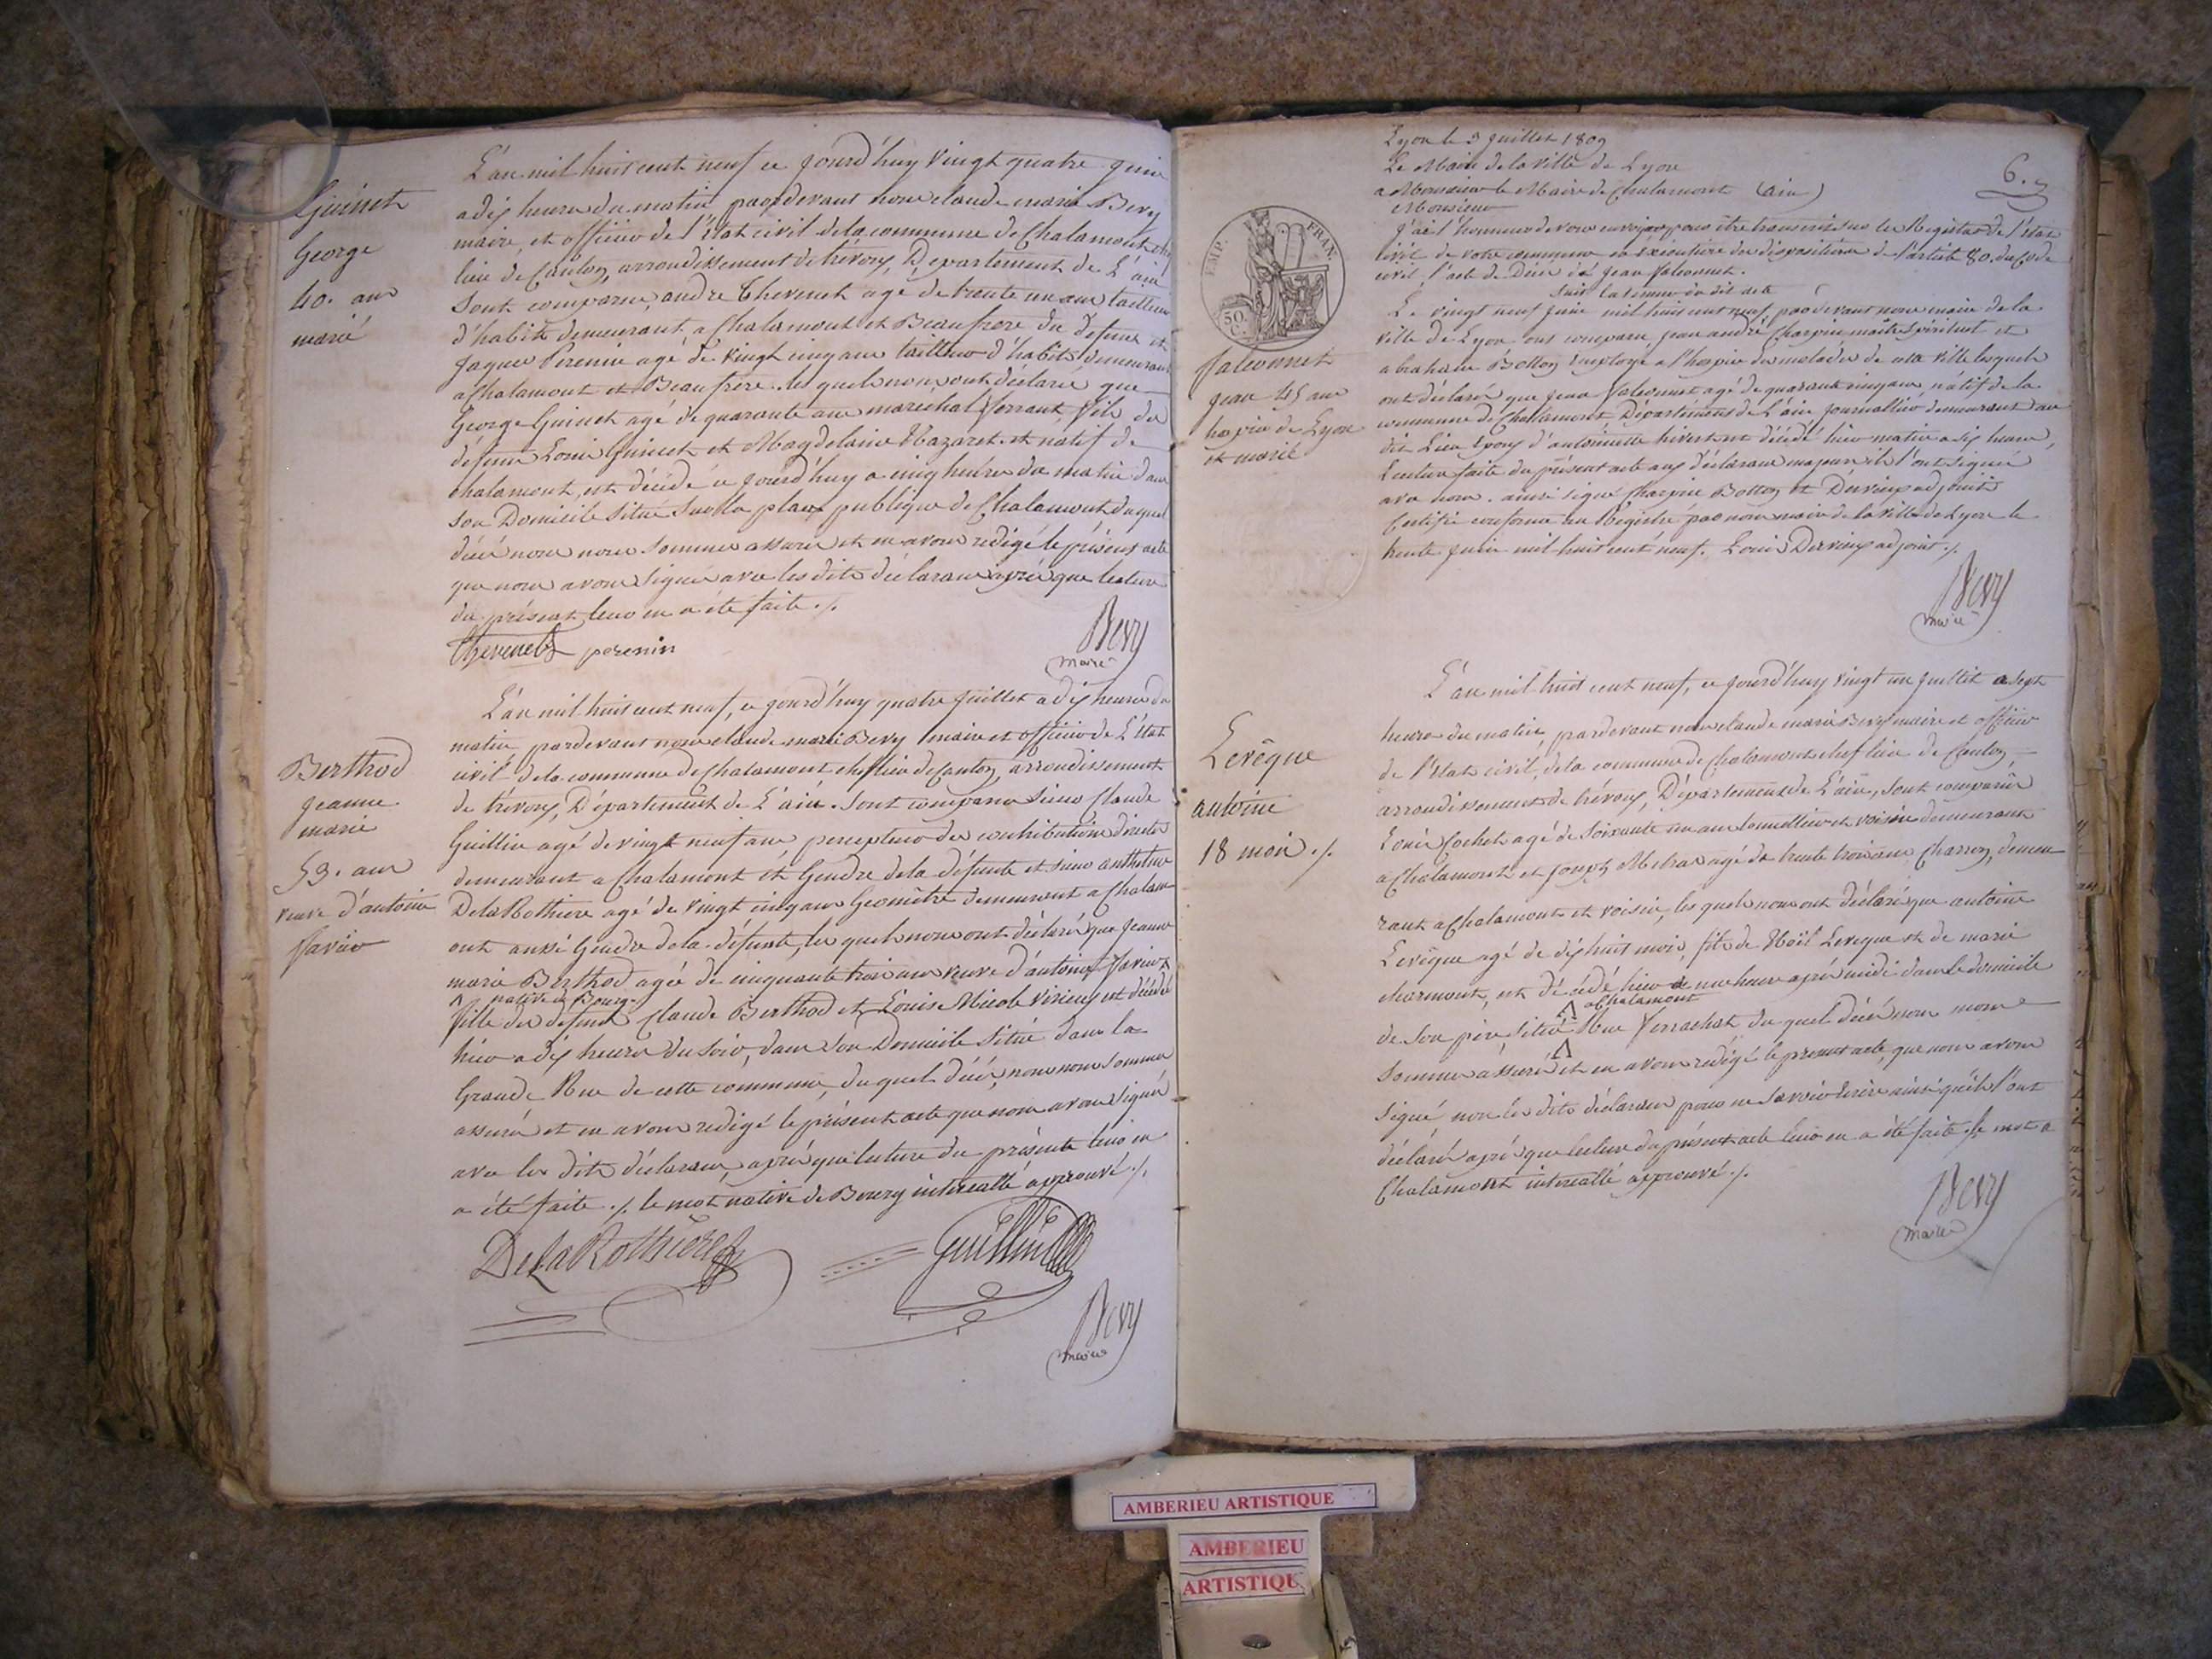 Guinet
George
40. ans
marié
L'an mil huit cent neuf ce jourd'huy vingt quatre juin
a dix heures du matin pardevant nous claude marie Bevy
maire et officier de l'état civil de la commune de Chalamont chef
lieu de Canton, arrondissement de trévoux, Département de L'ain
sont comparus, andré thevenet agé de trente un ans tailleur
d'habits demeurant a Chalamont et Beaufrere du defunt et
jaques Perenin agé de vingt cinq ans tailleur d'habits demeurant
a Chalamont et Beaufrere. les quels nous ont déclaré que
George Guinet agé de quarante ans marechal ferrant, fils de
defunt Louis Guinet et Magdelaine Mazaret et natif de
chalamont, est décédé ce jourd'huy a cinq heures du matin dans
son Domicile situé sur la place publique de Chalamont duquel
décés nous nous sommes assurés et en avons redigé le présent acte
que nous avons signés avec les dits déclarans après que lecture
du présent leur en a été faite ./.
Thevenet perenin
Bevy
maire
Berthod
jeanne
marie
53. ans
veuve d'antoine
Savier
L'an mil huit cent neuf, ce jourd'huy quatre juillet a dix heures du
matin pardevant nous claude marie Bevy maire et officier de L'état
civil de la commune de Chalamont chef lieu de Canton, arrondissement
de trévoux, Département de L'ain. sont comparus sieur Claude
Guillin agé de vingt neuf ans percepteur des contributions directes
demeurant a Chalamont et Gendre de la défunte et sieur anthelme
DelaRothiere agé de vingt cinq ans Geomètre demeurant a Chalam
ont aussi Gendre de la défunte, les quels nous ont déclaré que jeanne
marie Berthod agée de cinquante trois ans veuve d'antoine Savier
native de Bourg.
fille des defunts Claude Berthod et Louise Nicole Virieux est décédé
hier a dix heures du soir, dans son Domicile situé dans la
Grande Rue de cette commune, du quel décés, nous nous sommes
assurés et en avons redigé le présent acte que nous avons signé
avec les dits déclarans, après que lecture du présente leur en
a été faite ./. le mot native de Bourg intercallé approuvé ./.
DelaRothiere
Guillin
Bevy
maire
6.
Lyon le 3 juillet 1809
Le Maire de la ville de Lyon
a Monsieur le Maire de Chalamont (ain)
Monsieur
j'ai l'honneur de vous envoyer pour être transcrit sur les Registres de l'état
civil de votre commune en exécution des dispositions de l'article 80. du Code
civil, l'acte de Décés de jean falconnet.
suit la teneur du dit acte
EMP. FRAN.
50
C.
falconnet
jean 45 ans
hospice de Lyon
et marié
Le vingt neuf juin mil huit cent neuf, pardevant nous maire de la
ville de Lyon ont comparu jean andré Charpin maître spirituel et
abraham Botton employé a l'hospice des malades de cette ville lesquels
ont déclaré que jean falconnet agé de quarante cinq ans, natif de la
commune de Chalamont Département de L'ain journallier demeurant au
dit Lieu époux d'antoinette hivert est décédé hier matin a six heures,
Lecture faite du présent acte aux déclarans majeurs ils l'ont signé
avec nous. ainsi signé Charpin Botton et Dervieux adjoint
Certifié conforme au Registre par nous maire de la ville de Lyon le
trente juin mil huit cent neuf. Louis Dervieux adjoint ./.
Bevy
maire
Levêque
antoine
18 mois ./.
L'an mil huit cent neuf, ce jourd'huy vingt un juillet a sept
heures du matin, pardevant nous claude marie Bevy maire et officier
de l'état civil, de la commune de Chalamont chef lieu de Canton,
arrondissement de trévoux, Département de L'ain, sont comparus
Louis Cochet agé de soixante un ans tonnellier et voisin demeurant
a Chalamont et joseph Mehas agé de trente trois ans Charron, demeu
rant a Chalamont et voisin, les quels nous ont déclaré que antoine
Levêque agé de dix huit mois, fils de Noël Leveque et de marie
charmont, est décédé hier a une heure après midi dans le domicile
a Chalamont
de son père, situé Rue ferrachat du quel décés nous nous
sommes assurés et en avons redigé le present acte, que nous avons
signé, non les dits déclarans pour ne savoir écrire ainsi qu'ils l'ont
déclaré après que lecture du présent acte leur en a été faite ./. le mot a
Chalamont intercallé approuvé ./.
Bevy
maire
AMBERIEU ARTISTIQUE
AMBERIEU
ARTISTIQUE